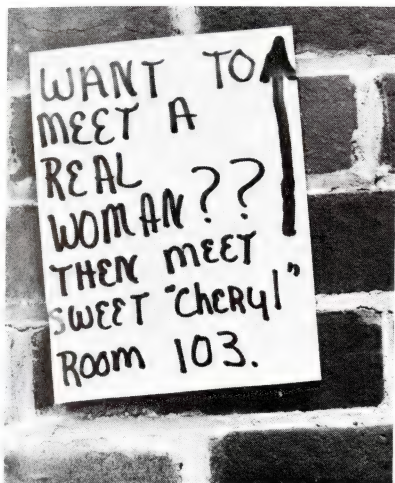 WANT TO
MEET A
REAL
WOMAN??
THEN MEET
SWEET "CheRyl"
ROOM 103.